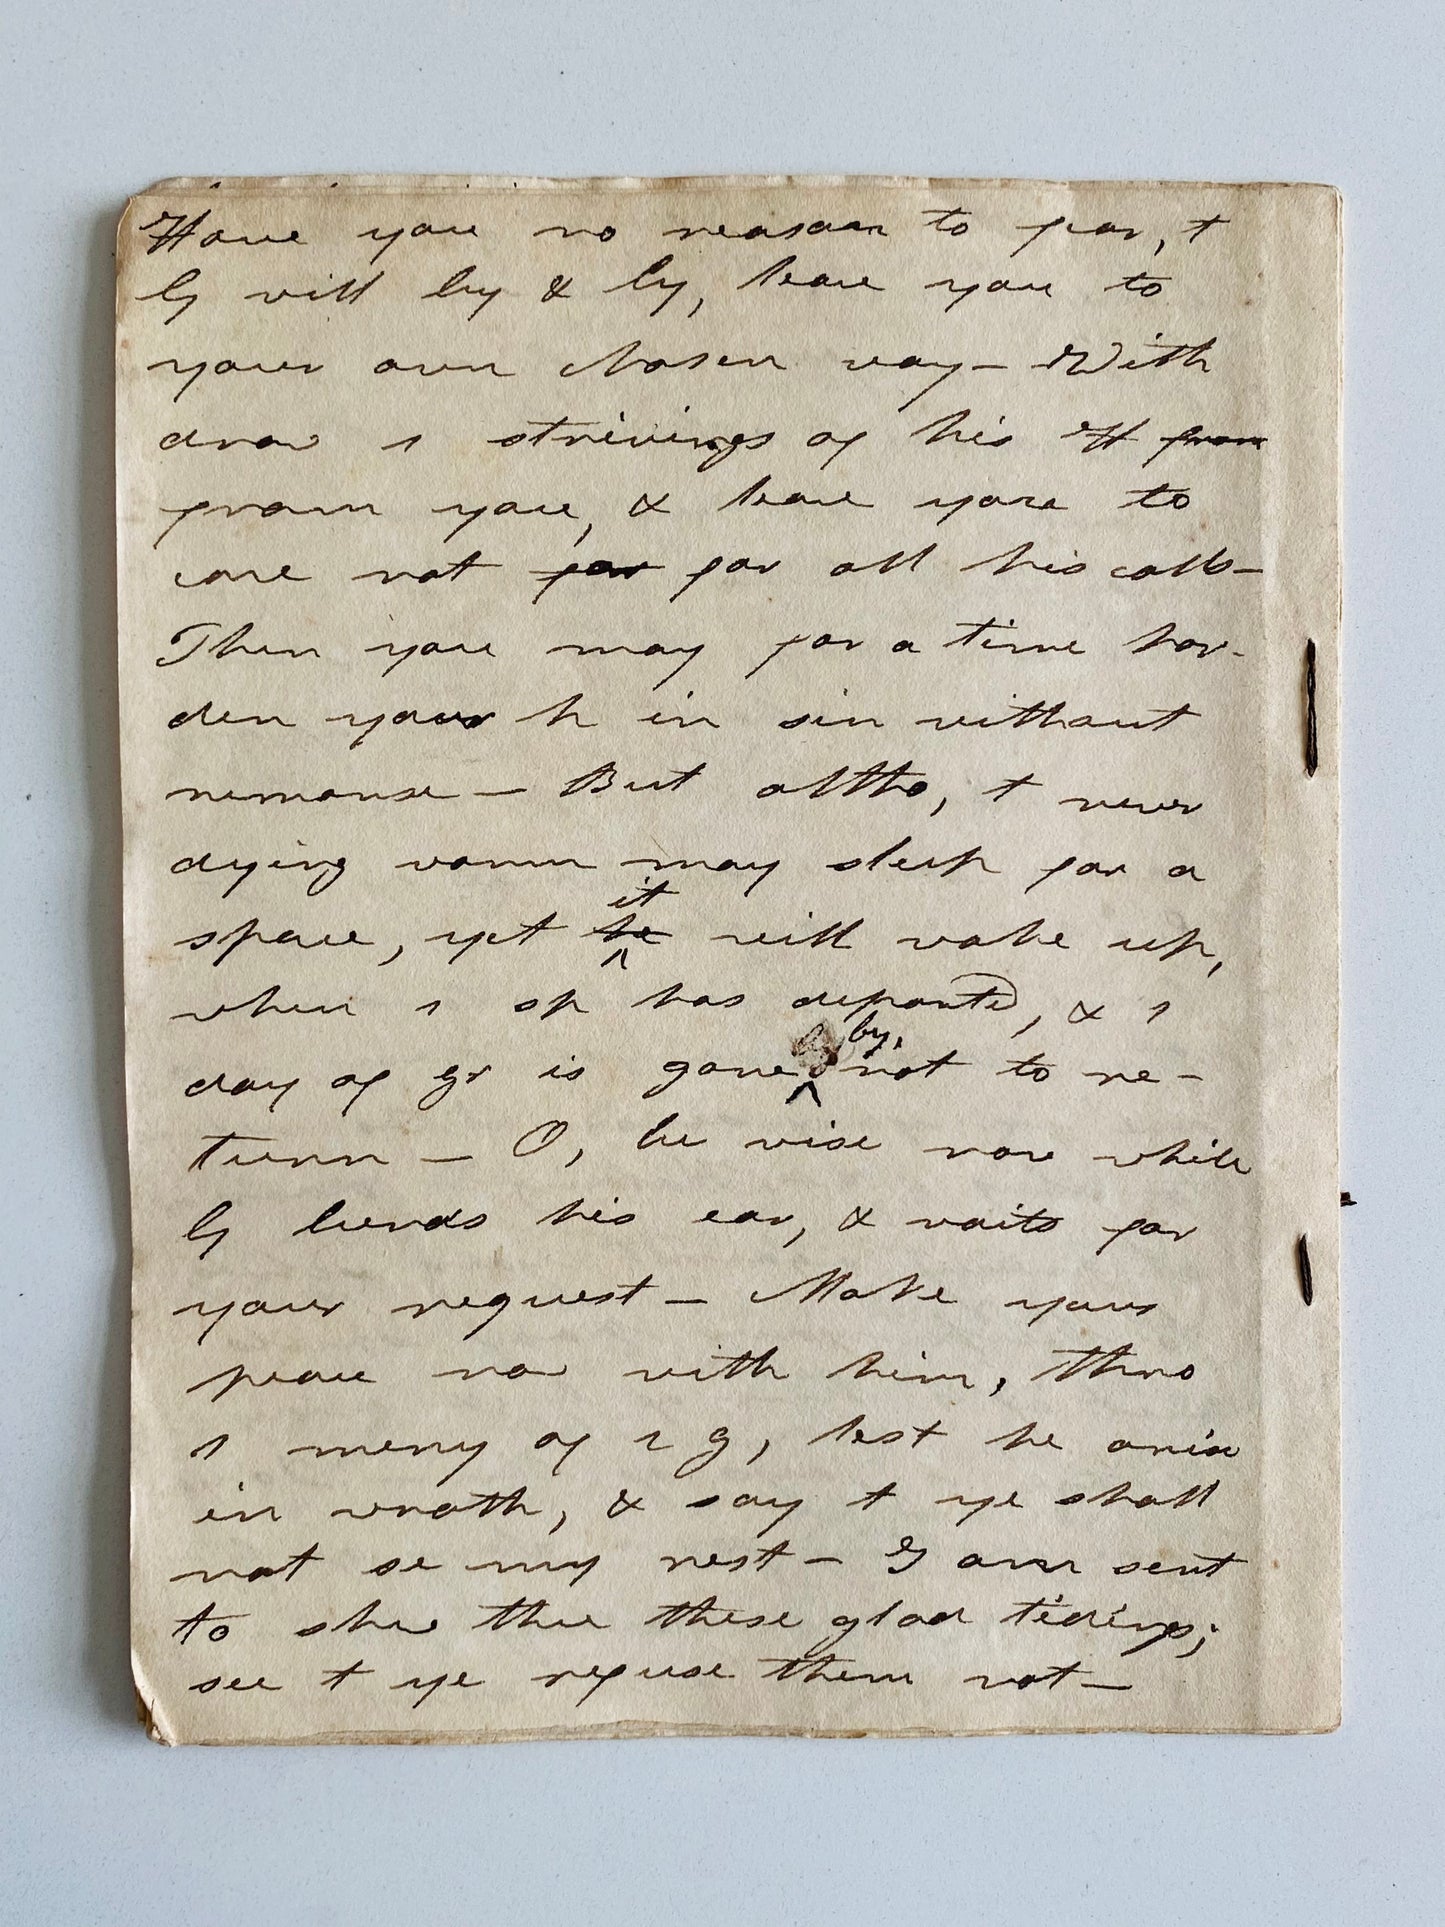 Have you no reason to fear, t
G will by & by, leave you to
your own chosen way - With
draw 1 strivings of his H from
from you, & leave you to
care not for for all his calls -
Then you may for a time har-
den your h in sin without
remorse - But altho, t never
dying worm may sleep for a
it
space, yet he will wake up,
when 1 sp has departed, & 1
by,
day of gr is gone not to re-
turn - O, be wise now while
G bends his ear, & waits for
your request - Make your
peace now with him, thro
1 mercy of 1 g, lest he arise
in wrath, & say t ye shall
not se my rest - I am sent
to shew thee these glad tidings;
see t ye refuse them not -